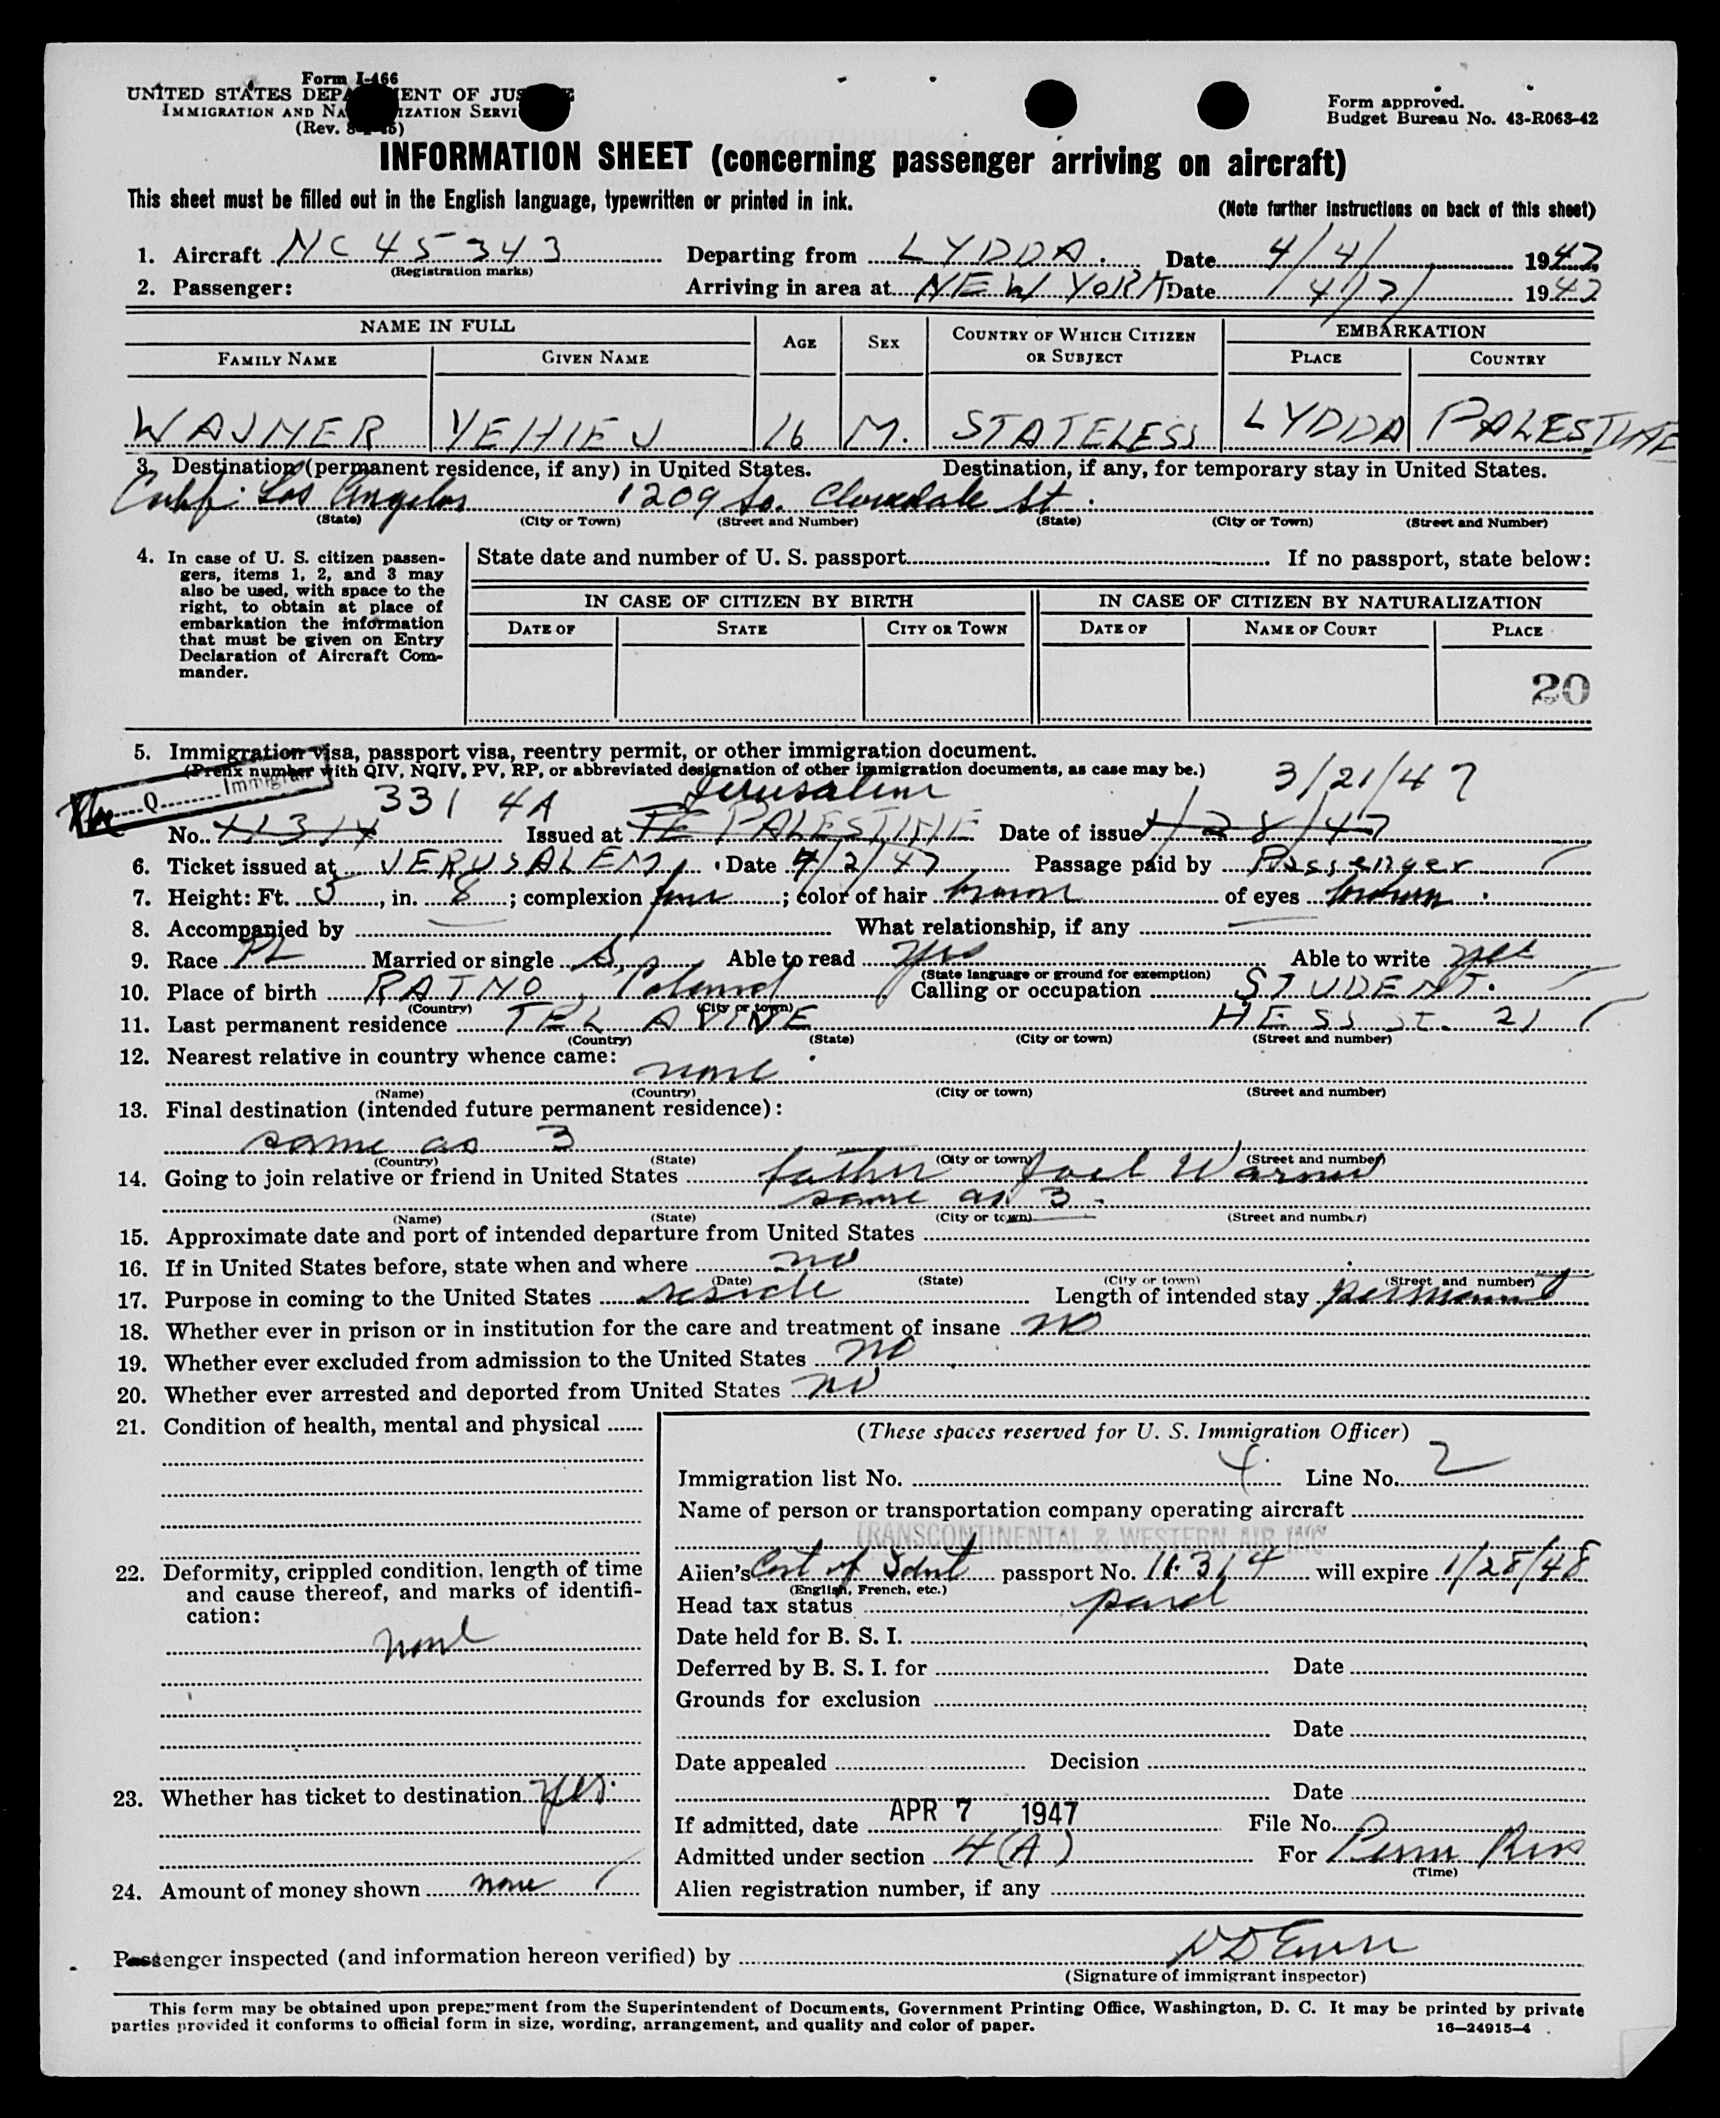 Form I-466
UNITED STATES DEPARTMENT OF JUSTICE
IMMIGRATION AND NATURALIZATION SERVICE
(Rev.
Form approved.
Budget Bureau No. 43-R063-42
INFORMATION SHEET (concerning passenger arriving on aircraft)
This sheet must be filled out in the English language, typewritten or printed in ink.
(Note further instructions on back of this sheet)
1. Aircraft NC 45343 Departing from LYDDA. Date 4/4/ 1947
(Registration marks)
2. Passenger: Arriving in area at NEW YORK Date 4/7/ 1947
NAME IN FULL AGE SEX COUNTRY OF WHICH CITIZEN OR SUBJECT EMBARKATION
FAMILY NAME GIVEN NAME PLACE COUNTRY
WAJNER YEHIEJ 16 M. STATELESS LYDDA PALESTINE
3. Destination (permanent residence, if any) in United States. Destination, if any, for temporary stay in United States.
Calif. Los Angeles 1209 So. Cloverdale St.
(State) (City or Town) (Street and Number) (State) (City or Town) (Street and Number)
4. In case of U. S. citizen passen-
gers, items 1, 2, and 3 may
also be used, with space to the
right, to obtain at place of
embarkation the information
that must be given on Entry
Declaration of Aircraft Com-
mander.
State date and number of U. S. passport If no passport, state below:
IN CASE OF CITIZEN BY BIRTH IN CASE OF CITIZEN BY NATURALIZATION
DATE OF STATE CITY OR TOWN DATE OF NAME OF COURT PLACE
20
5. Immigration visa, passport visa, reentry permit, or other immigration document.
(Prefix number with QIV, NQIV, PV, RP, or abbreviated designation of other immigration documents, as case may be.)
Q Immigrant
331 4A Jerusalem 3/21/47
No. 11314 Issued at TE PALESTINE Date of issue 1/28/47
6. Ticket issued at JERUSALEM Date 4/2/47 Passage paid by Passenger
7. Height: Ft. 5, in. 8; complexion fair; color of hair brown of eyes brown
8. Accompanied by What relationship, if any
9. Race PL Married or single S. Able to read yes Able to write yes
(State language or ground for exemption)
10. Place of birth RATNO, Poland Calling or occupation STUDENT.
(Country) (City or town)
11. Last permanent residence TEL AVIVE HESS ST. 21
(Country) (State) (City or town) (Street and number)
12. Nearest relative in country whence came:
none
(Name) (Country) (City or town) (Street and number)
13. Final destination (intended future permanent residence):
same as 3
(Country) (State) (City or town) (Street and number)
14. Going to join relative or friend in United States father Joel Warner
same as 3
(Name) (State) (City or town) (Street and number)
15. Approximate date and port of intended departure from United States
16. If in United States before, state when and where no
(Date) (State) (City or town) (Street and number)
17. Purpose in coming to the United States reside Length of intended stay permanent
18. Whether ever in prison or in institution for the care and treatment of insane no
19. Whether ever excluded from admission to the United States no
20. Whether ever arrested and deported from United States no
21. Condition of health, mental and physical
22. Deformity, crippled condition, length of time
and cause thereof, and marks of identifi-
cation:
none
23. Whether has ticket to destination yes.
24. Amount of money shown none
(These spaces reserved for U. S. Immigration Officer)
Immigration list No. 4 Line No. 2
Name of person or transportation company operating aircraft
TRANSCONTINENTAL & WESTERN AIR INC
Alien's Cert of Ident passport No. 11314 will expire 1/28/48
(English, French, etc.)
Head tax status paid
Date held for B. S. I.
Deferred by B. S. I. for Date
Grounds for exclusion
Date
Date appealed Decision
Date
If admitted, date APR 7 1947 File No.
Admitted under section 4(A) For Perm Res
(Time)
Alien registration number, if any
Passenger inspected (and information hereon verified) by
(Signature of immigrant inspector)
This form may be obtained upon prepayment from the Superintendent of Documents, Government Printing Office, Washington, D. C. It may be printed by private
parties provided it conforms to official form in size, wording, arrangement, and quality and color of paper.
16—24915-4